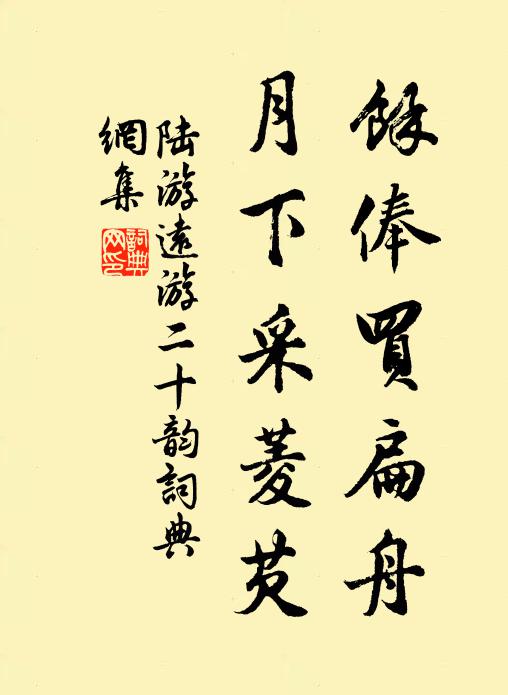 餘俸買扁舟
月下采菱芡
陆游遠游二十韵詞典
網集
詞典
网印